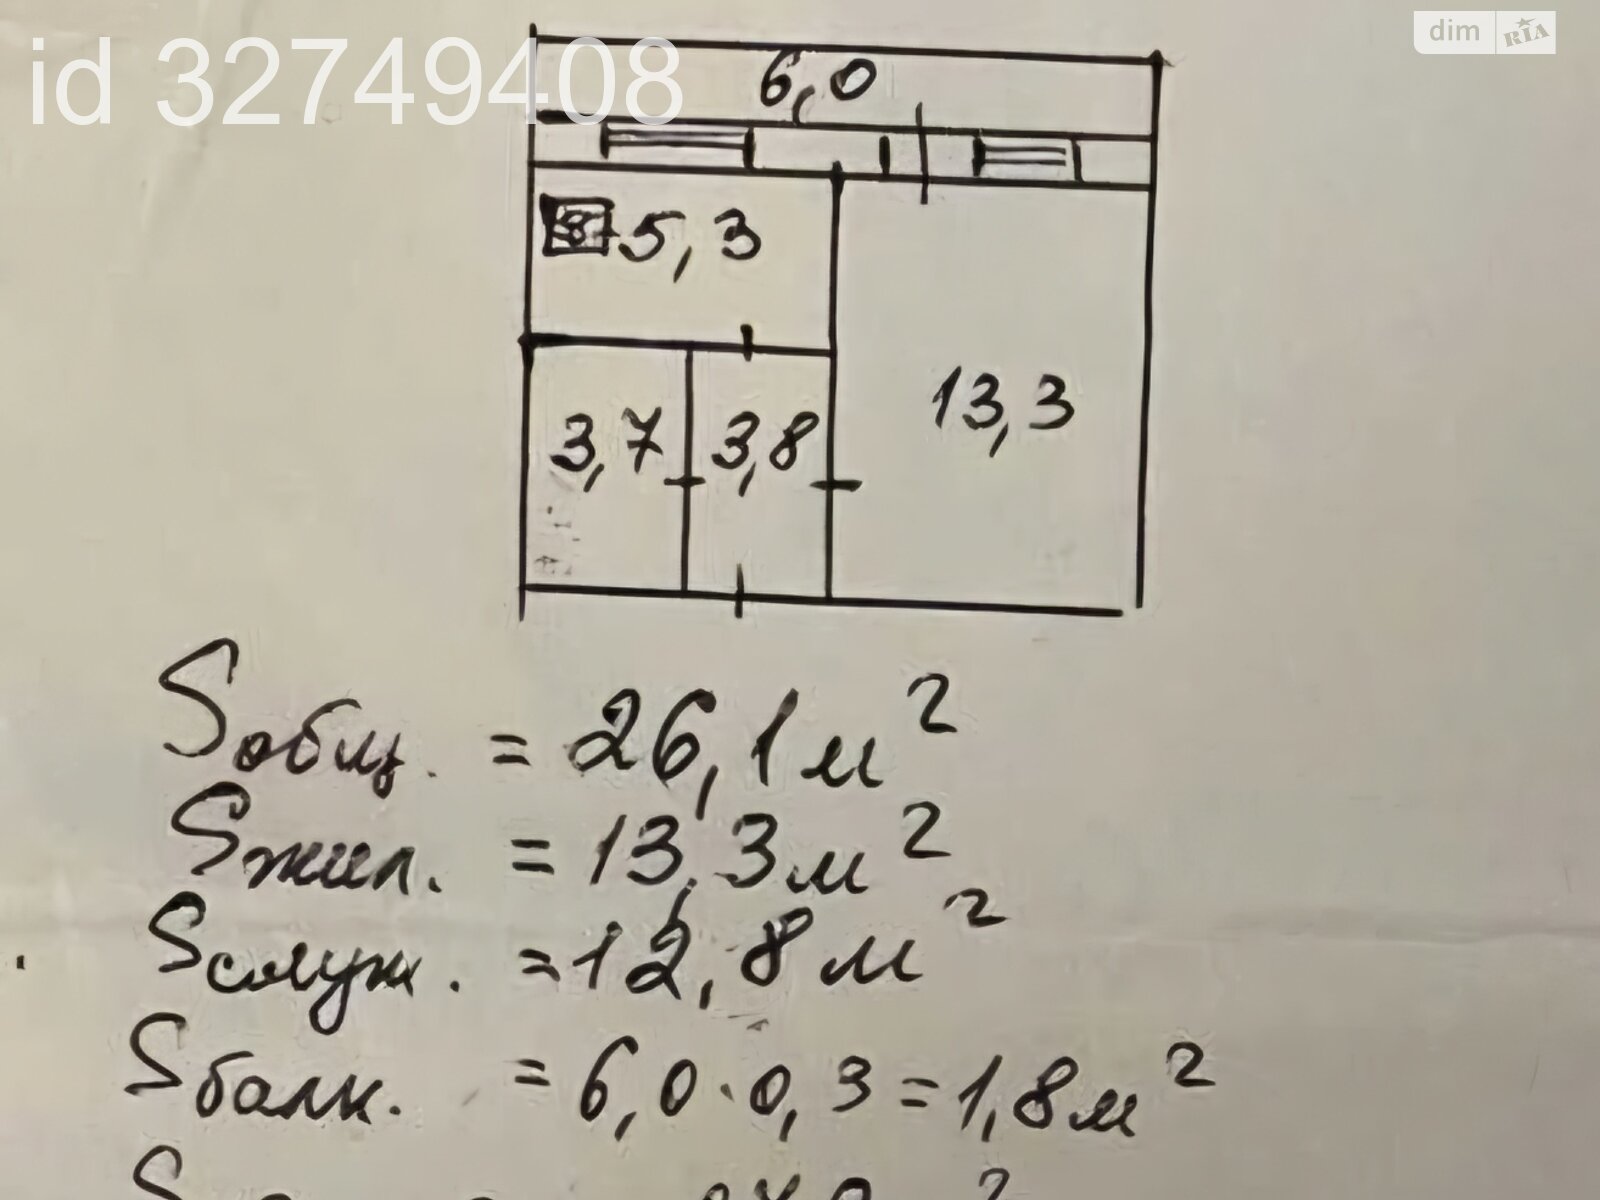 id 32749408
dim RIA
6,0
5,3
3,7 3,8 13,3
Sобщ. = 26,1 м²
Sжил. = 13,3 м²
Sслуж. = 12,8 м²
Sбалк. = 6,0·0,3 = 1,8 м²